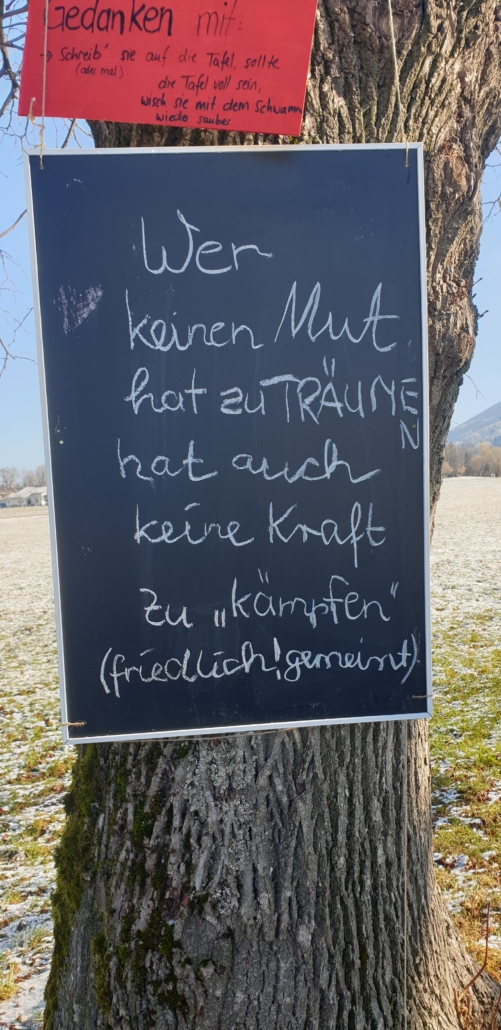 Gedanken mit:
→ Schreib' sie auf die Tafel, sollte
(oder mal)
die Tafel voll sein,
wisch sie mit dem Schwamm
wieder sauber
Wer
keinen Mut
hat zu TRÄUME
N
hat auch
keine Kraft
zu „kämpfen"
(friedlich! gemeint)